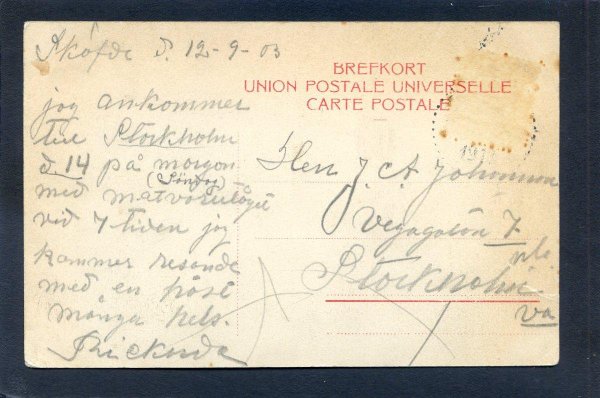 Sköfde d. 12-9-03
BREFKORT
UNION POSTALE UNIVERSELLE
CARTE POSTALE
jag ankommer
till Stockholm
d. 14 på morgon
(Söndag)
med
vid 7 tiden jag
kommer resande
med en
många hels.
Rickard
Herr J. A. Johansson
Vegagatan 7
Stockholm
va